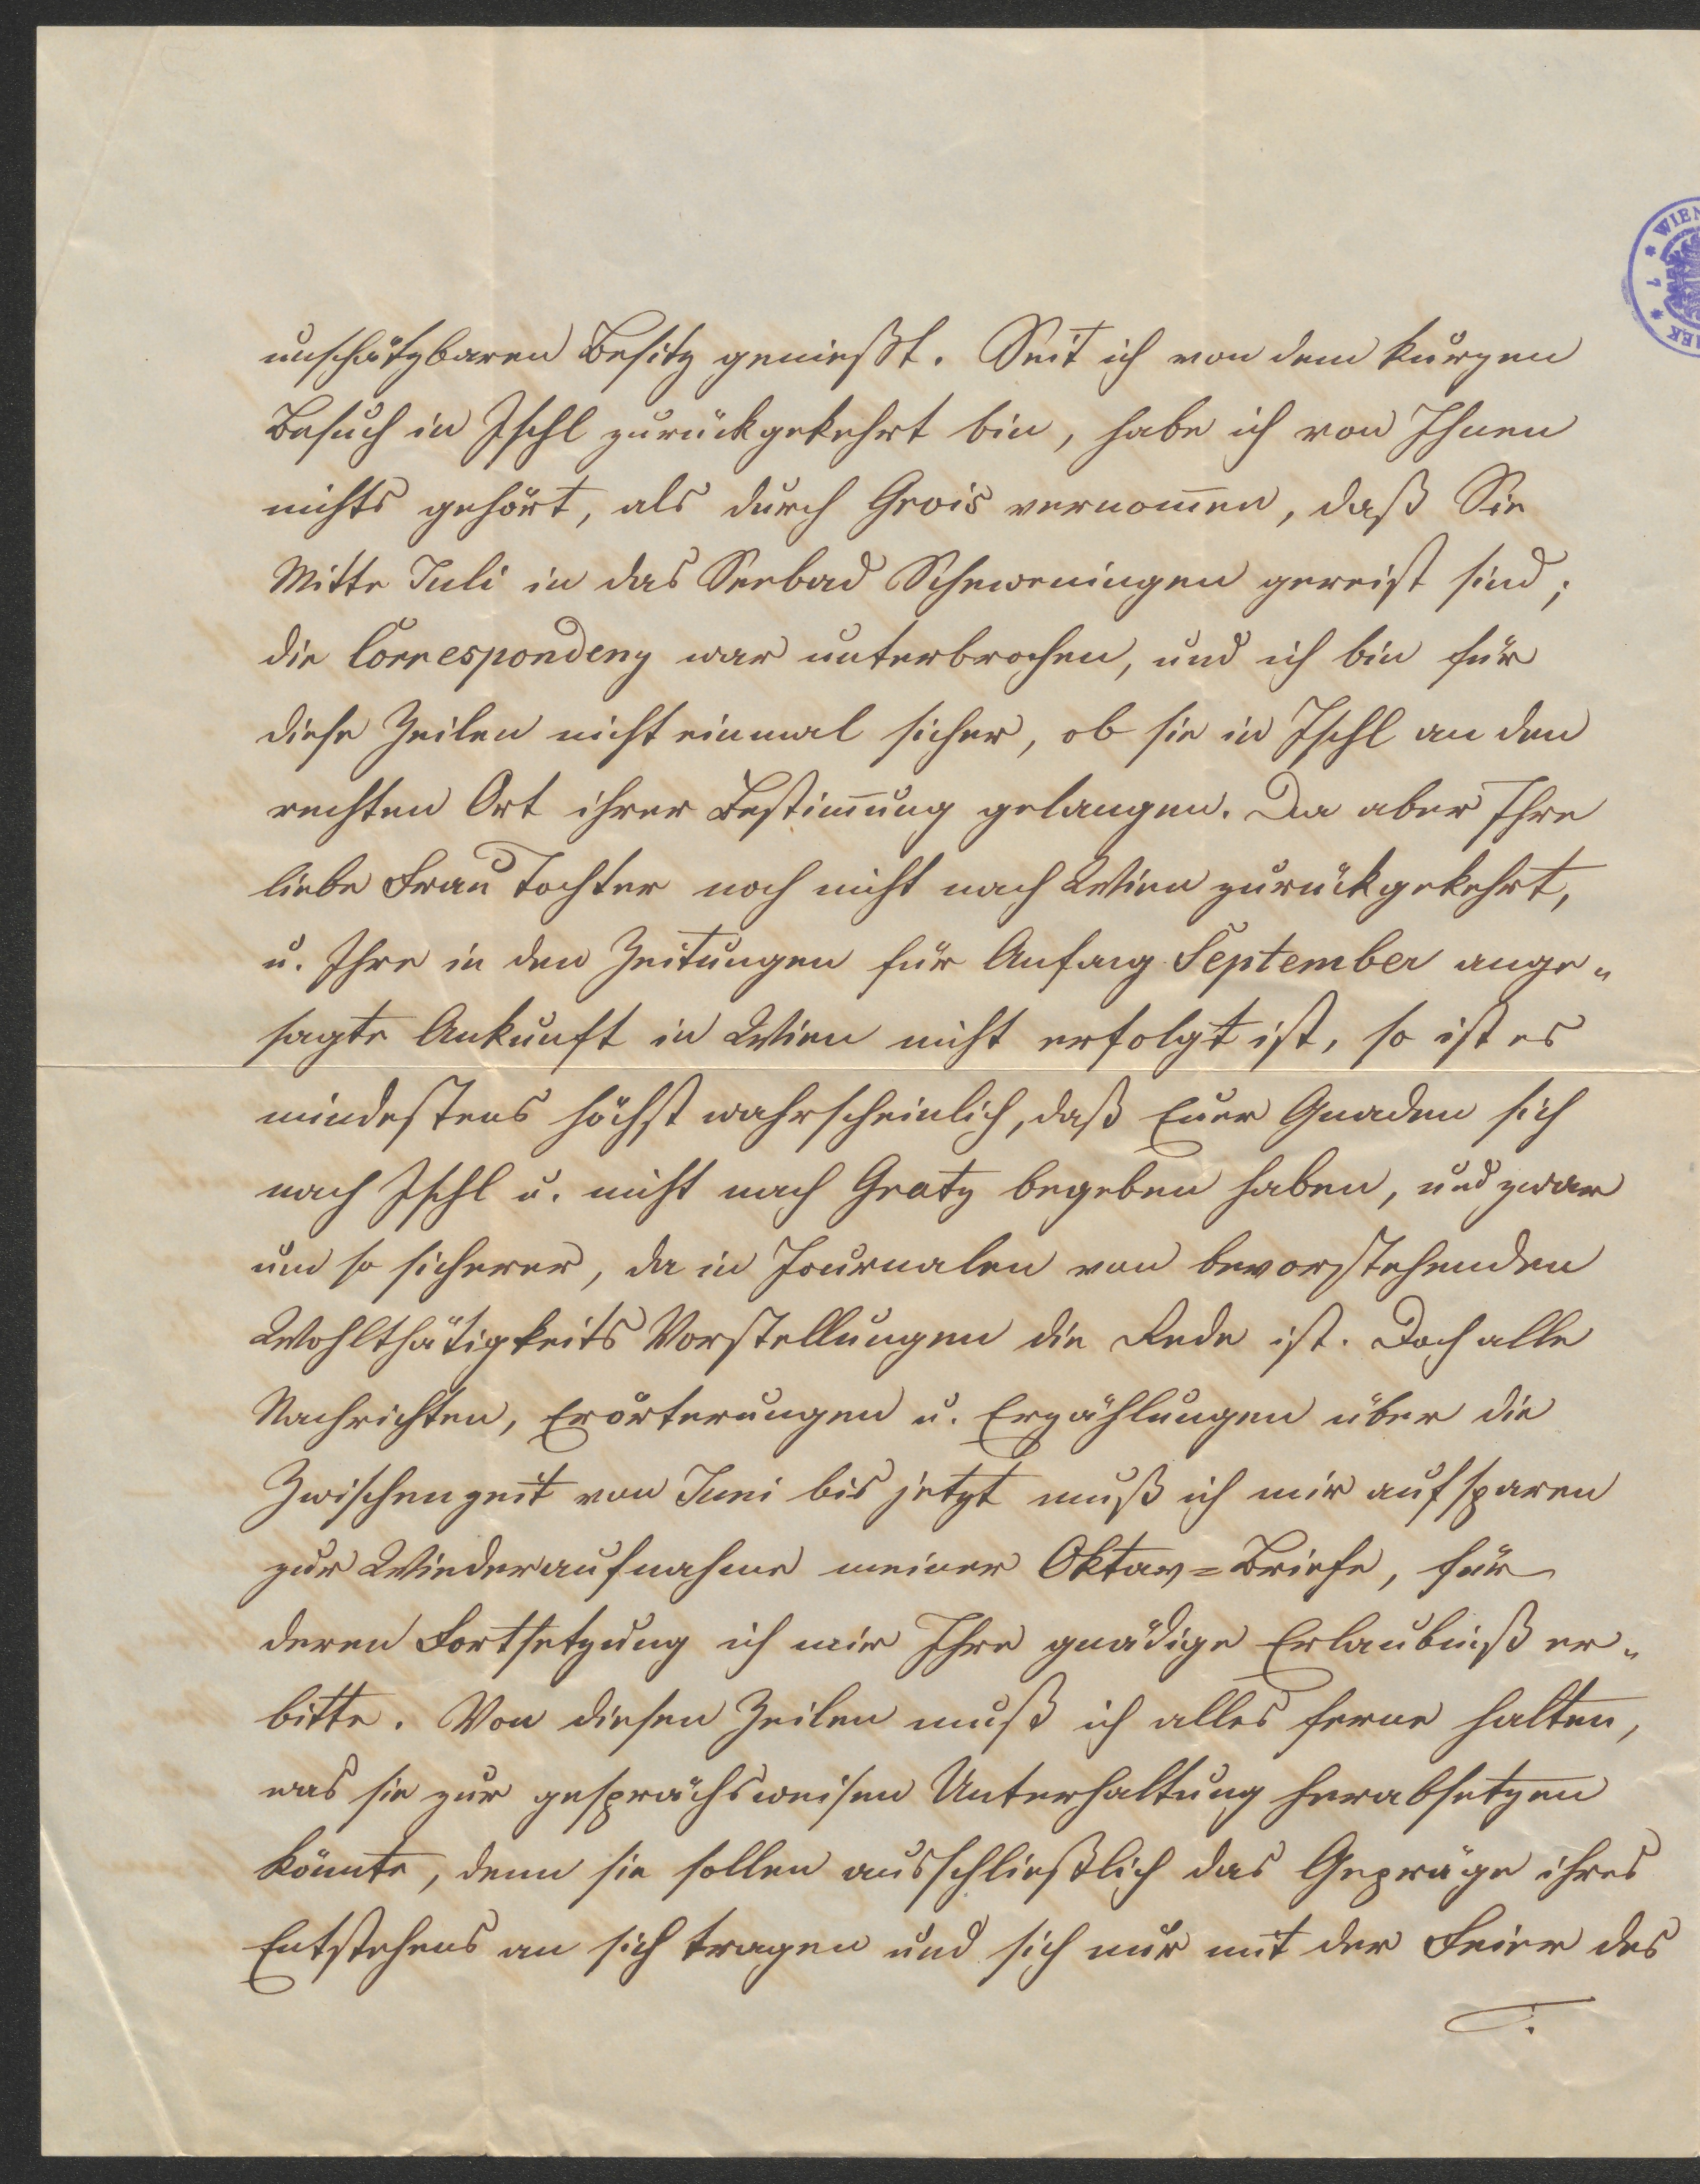 unschätzbaren Besitz genießt. Seit ich von dem kurzen
Besuch in Ischl zurückgekehrt bin, habe ich von Ihnen
nichts gehört, als durch Grois vernom̅en, daß Sie
Mitte Juli in das Seebad Scheweningen gereist sind;
die Correspondenz war unterbrochen, und ich bin für
diese Zeilen nicht einmal sicher, ob sie in Ischl an den
rechten Ort ihrer Bestim̅ung gelangen. Da aber Ihre
liebe Frau Tochter noch nicht nach Wien zurückgekehrt,
u. Ihre in den Zeitungen für Anfang September ange„
sagte Ankunft in Wien nicht erfolgt ist, so ist es
mindestens höchst wahrscheinlich, daß Euer Gnaden sich
nach Ischl u. nicht nach Gratz begeben haben, und zwar
um so sicherer, da in Journalen von bevorstehenden
Wohlthätigkeits Vorstellungen die Rede ist. Doch alle
Nachrichten, Erörterungen u. Erzählungen über die
Zwischenzeit von Juni bis jetzt muß ich mir aufsparen
zur Wiederaufnahme meiner Oktav=Briefe, für
deren Fortsetzung ich mir Ihre gnädige Erlaubniß er„
bitte. Von diesen Zeilen muß ich alles ferne halten,
was sie zur gesprächsweisen Unterhaltung herabsetzen
könnte, denn sie sollen ausschließlich das Gepräge ihres
Entstehens an sich tragen und sich nur mit der Feier des
WIEN